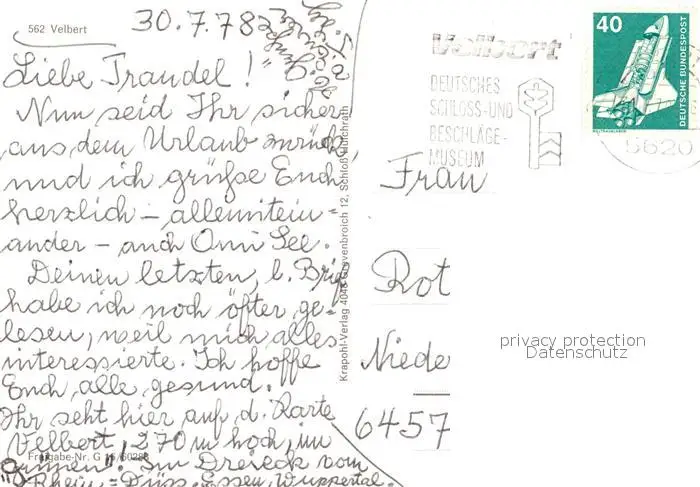 562 Velbert
30.7.78
Liebe Traudel!
Nun seid Ihr sicher
aus dem Urlaub zurück,
und ich grüße Euch
herzlich – alleinitein=
ander – auch Omi See.
Deinen letzten, l. Brief
habe ich noch öfter ge-
lesen, weil mich alles
interessierte. Ich hoffe
Euch, alle gesund.
Ihr seht hier auf d. Karte
Velbert, 270 m hoch, im
"Grünen"! Im Dreieck vom
"Rhein = Düss. Essen, Wuppertal.
Freigabe-Nr. G
Krapohl-Verlag 4048 Grevenbroich 12, Schloß Hülchrath
Velbert
DEUTSCHES
SCHLOSS-UND
BESCHLÄGE-
MUSEUM
40
DEUTSCHE BUNDESPOST
WELTRAUMLABOR
5620
Frau
Rot
Niede
6457
privacy protection
Datenschutz